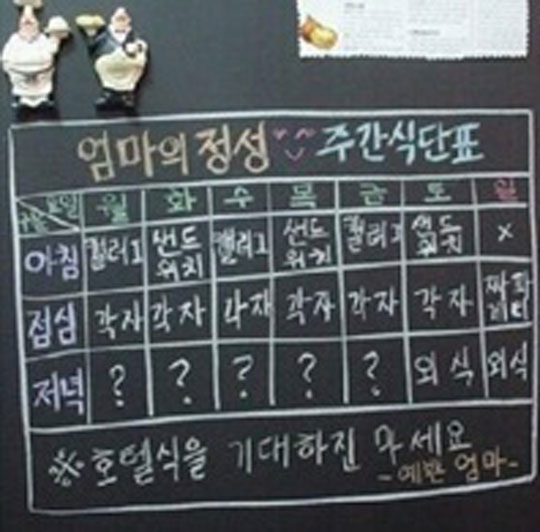 엄마의 정성 주간식단표
요일 월 화 수 목 금 토 일
아침 켈러그 샌드위치 켈러그 샌드위치 켈러그 샌드위치 x
점심 각자 각자 각자 각자 각자 각자 짜파게티
저녁 ? ? ? ? ? 외식 외식
※ 호텔식을 기대하진 마세요
-예쁜 엄마-